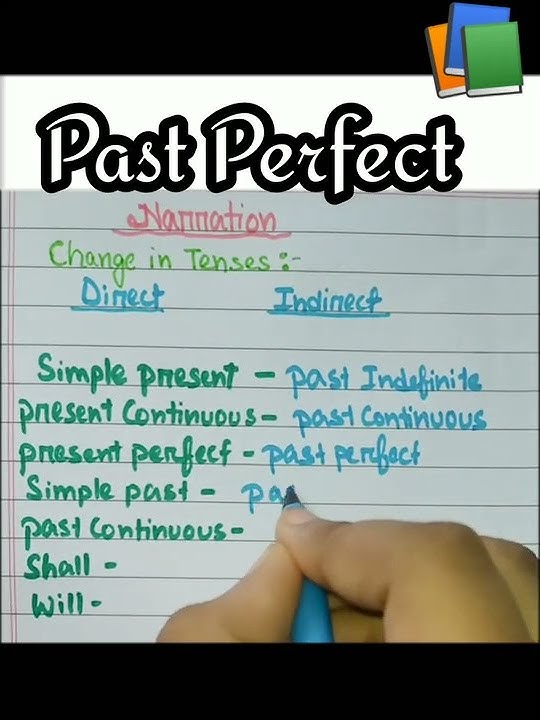 Past Perfect
Narration
Change in Tenses :-
Direct Indirect
Simple present - past Indefinite
present Continuous - past Continuous
present perfect - past perfect
Simple past - pa
past Continuous -
Shall -
Will -